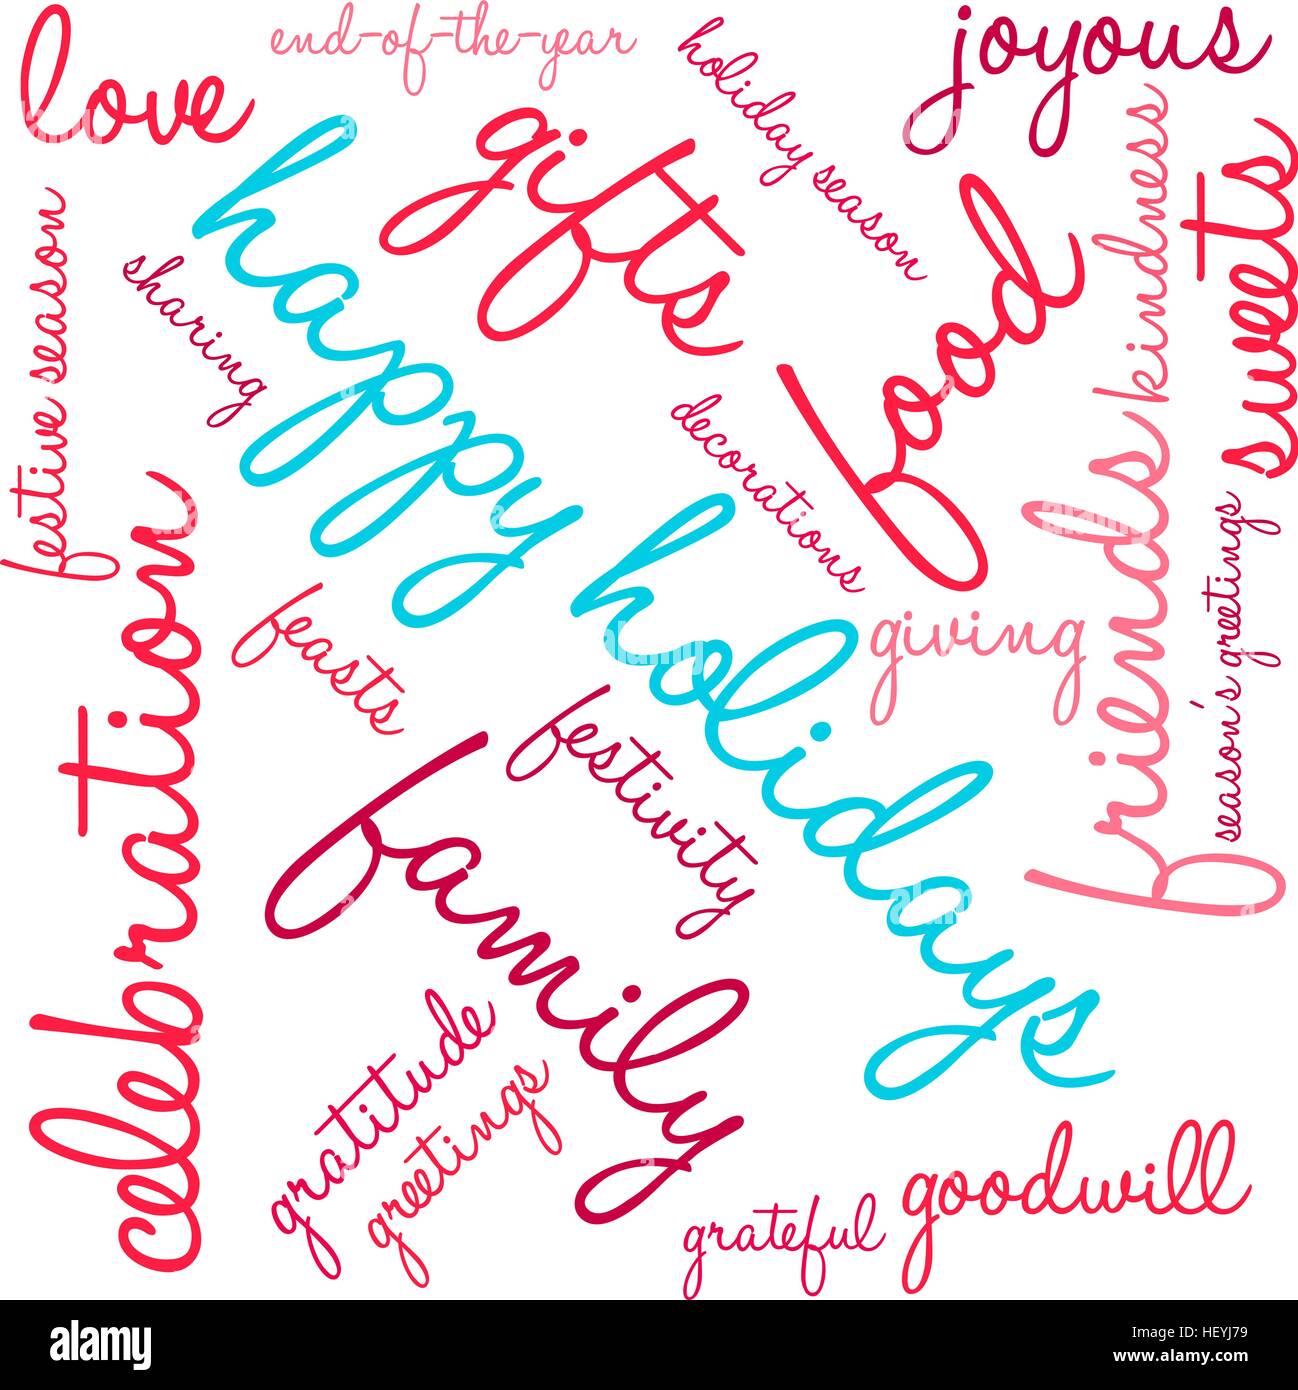 love
end-of-the-year
holiday season
joyous
gifts
happy
kindness
sweets
festive season
sharing
food
decorations
holidays
friends
season's greetings
celebration
feasts
giving
festivity
family
gratitude
greetings
grateful
goodwill
alamy
Image ID: HEYJ79
www.alamy.com